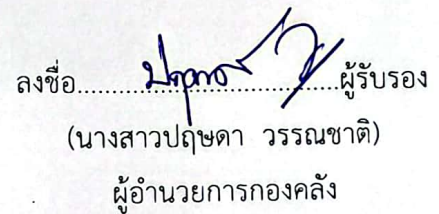 ลงชื่อ....................................ผู้รับรอง
(นางสาวปฤษดา วรรณชาติ)
ผู้อำนวยการกองคลัง